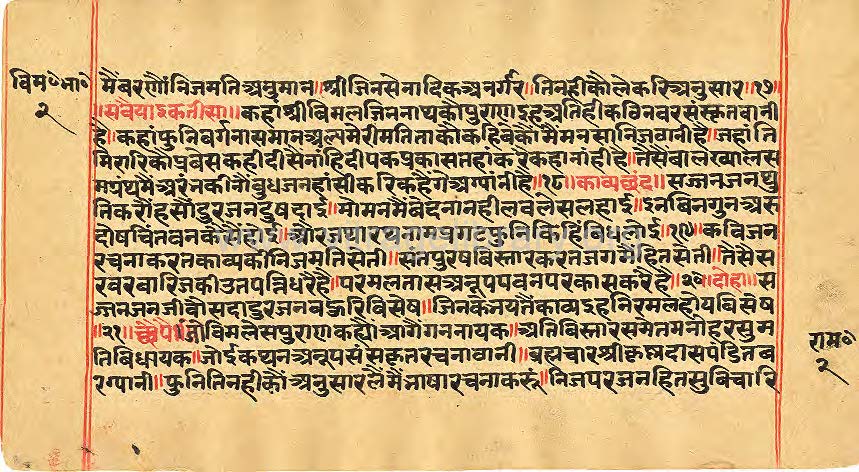 विम॰भा॰
२
मैंबरणौंनिजमतिअनुमान॥श्रीजिनसेनादिकअनगार॥तिनहीकौलेकरिअनुसार॥१७॥
॥सवैयाइकतीसा॥कहांश्रीबिमलजिननाथकौपुराणइहअतिहीकठिनवरसंस्कृतवानी
है॥कहांफुनिवर्गनासमानअल्पमेरीमतिताकौकहिबेकौंमैंमनसानिजठानीहै॥जहांति
मिरारिकोप्रबेसकहीदीसैनांहिदीपकप्रकासतहांकरैकहानांहीहै॥तैसैंबालख्यालस
मग्रंथमैंअरंनकीनौंबुधजनहांसीकरिकहैंगेअग्यांनीहै॥१८॥काव्यछंद॥सज्जनजनथु
तिकरौंहसौंदुरजनदुषदाई॥मोमनमैंबेदनांनहीलवलेसलहाई॥इनबिनगुनअरु
दोषचिंतवनकौं
विधि
॥१९॥कविजन
रचनाकरतकाव्यकीनिजमतिसेती॥सतपुरषबिस्तारकरतजगमैंहितसेती॥तैसैंस
रवरवारिजकीउतपत्तिधरैहै॥परमलतासअनूपपवनपरकासकरैहै॥२०॥दोहा॥स
ज्जनजनजीकौसदादुरजनबहुरिविसेष॥जिनकेनयतैंकाव्यइहनिरमलहोयबिसेष
॥२१॥छप्पै॥जोबिमलेसपुराणकह्यौआगैंगननायक॥अतिबिस्तारसमेतमनोहरसुम
तिबिधायक॥जोईकथनअनूपसंसकृतरचनावानी॥ब्रह्मचारश्रीकृष्णदासपंडितब
रग्यानी॥फुनितिनहीकौंअनुसारलैमैंभाषारचनाकरूं॥निजपरजनहितसुविचारि
राम॰
२
www.jainelibrary.org